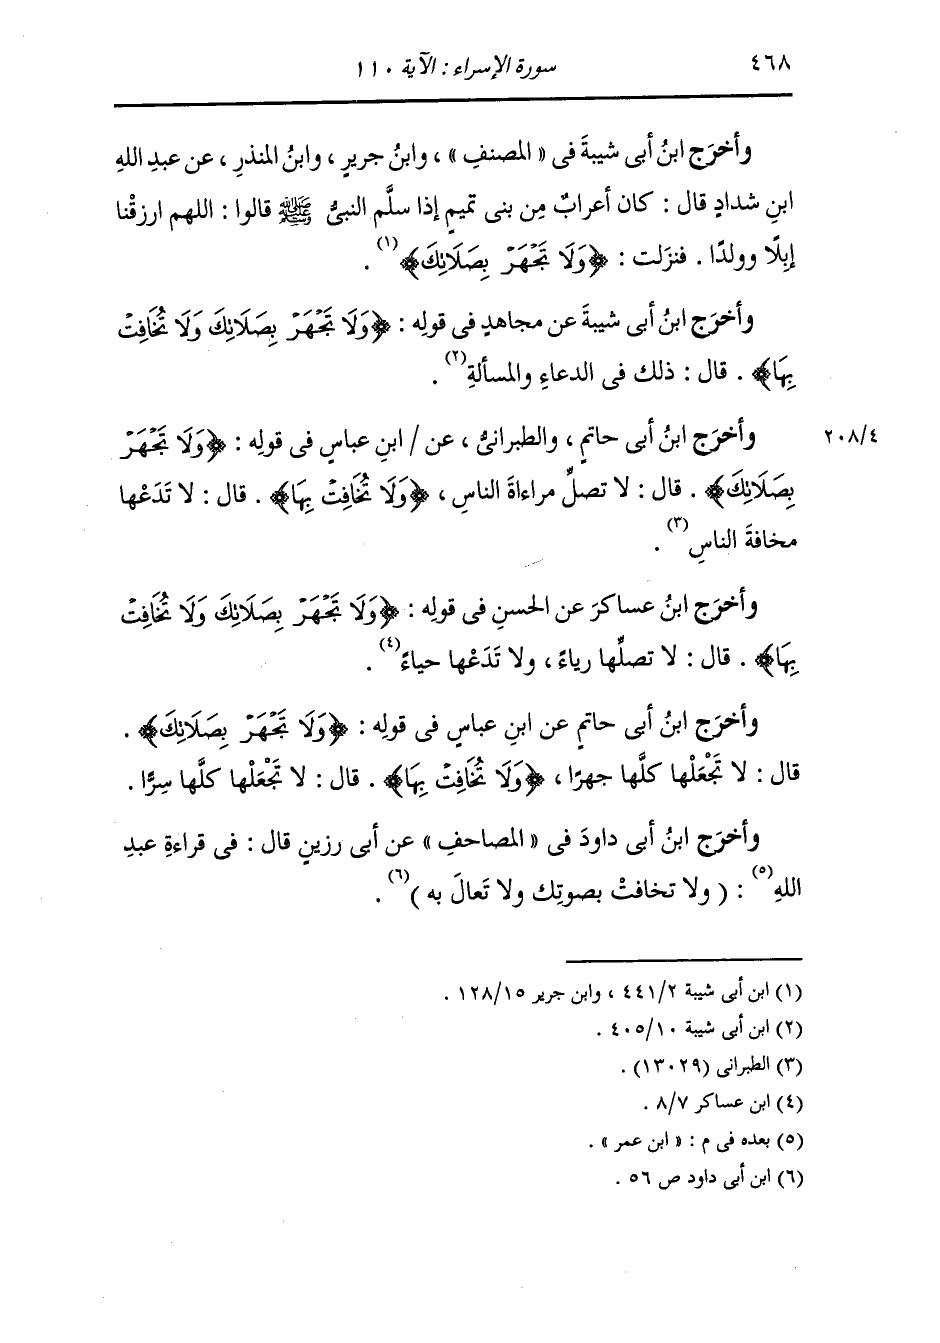 ٤٦٨
سورة الإسراء : الآية ١١٠
وأخرَج ابنُ أبى شيبةَ فى « المصنفِ » ، وابنُ جريرٍ ، وابنُ المنذرِ ، عن عبدِ اللهِ
ابنِ شدادٍ قال : كان أعرابٌ مِن بنى تميمٍ إذا سلَّم النبىُّ ﷺ قالوا : اللهم ارزقْنا
إبلًا وولدًا . فنزَلت : ﴿وَلَا تَجْهَرْ بِصَلَاتِكَ﴾(١) .
وأخرَج ابنُ أبى شيبةَ عن مجاهدٍ فى قولِه : ﴿وَلَا تَجْهَرْ بِصَلَاتِكَ وَلَا تُخَافِتْ
بِهَا﴾ . قال : ذلك فى الدعاءِ والمسألةِ(٢) .
وأخرَج ابنُ أبى حاتمٍ ، والطبرانىُّ ، عن / ابنِ عباسٍ فى قولِه : ﴿وَلَا تَجْهَرْ
٢٠٨/٤
بِصَلَاتِكَ﴾ . قال : لا تصلِّ مراءاةَ الناسِ ، ﴿وَلَا تُخَافِتْ بِهَا﴾ . قال : لا تَدَعْها
مخافةَ الناسِ(٣) .
وأخرَج ابنُ عساكرَ عن الحسنِ فى قولِه : ﴿وَلَا تَجْهَرْ بِصَلَاتِكَ وَلَا تُخَافِتْ
بِهَا﴾ . قال : لا تصلِّها رياءً ، ولا تَدَعْها حياءً(٤) .
وأخرَج ابنُ أبى حاتمٍ عن ابنِ عباسٍ فى قولِه : ﴿وَلَا تَجْهَرْ بِصَلَاتِكَ﴾ .
قال : لا تَجْعَلْها كلَّها جهرًا ، ﴿وَلَا تُخَافِتْ بِهَا﴾ . قال : لا تَجْعَلْها كلَّها سِرًّا .
وأخرَج ابنُ أبى داودَ فى « المصاحفِ » عن أبى رزينٍ قال : فى قراءةِ عبدِ
اللهِ(٥) : ( ولا تخافتْ بصوتِك ولا تَعالَ به )(٦) .
(١) ابن أبى شيبة ٤٤١/٢ ، وابن جرير ١٢٨/١٥ .
(٢) ابن أبى شيبة ٤٠٥/١٠ .
(٣) الطبرانى (١٣٠٢٩) .
(٤) ابن عساكر ٨/٧ .
(٥) بعده فى م : « ابن عمر » .
(٦) ابن أبى داود ص ٥٦ .